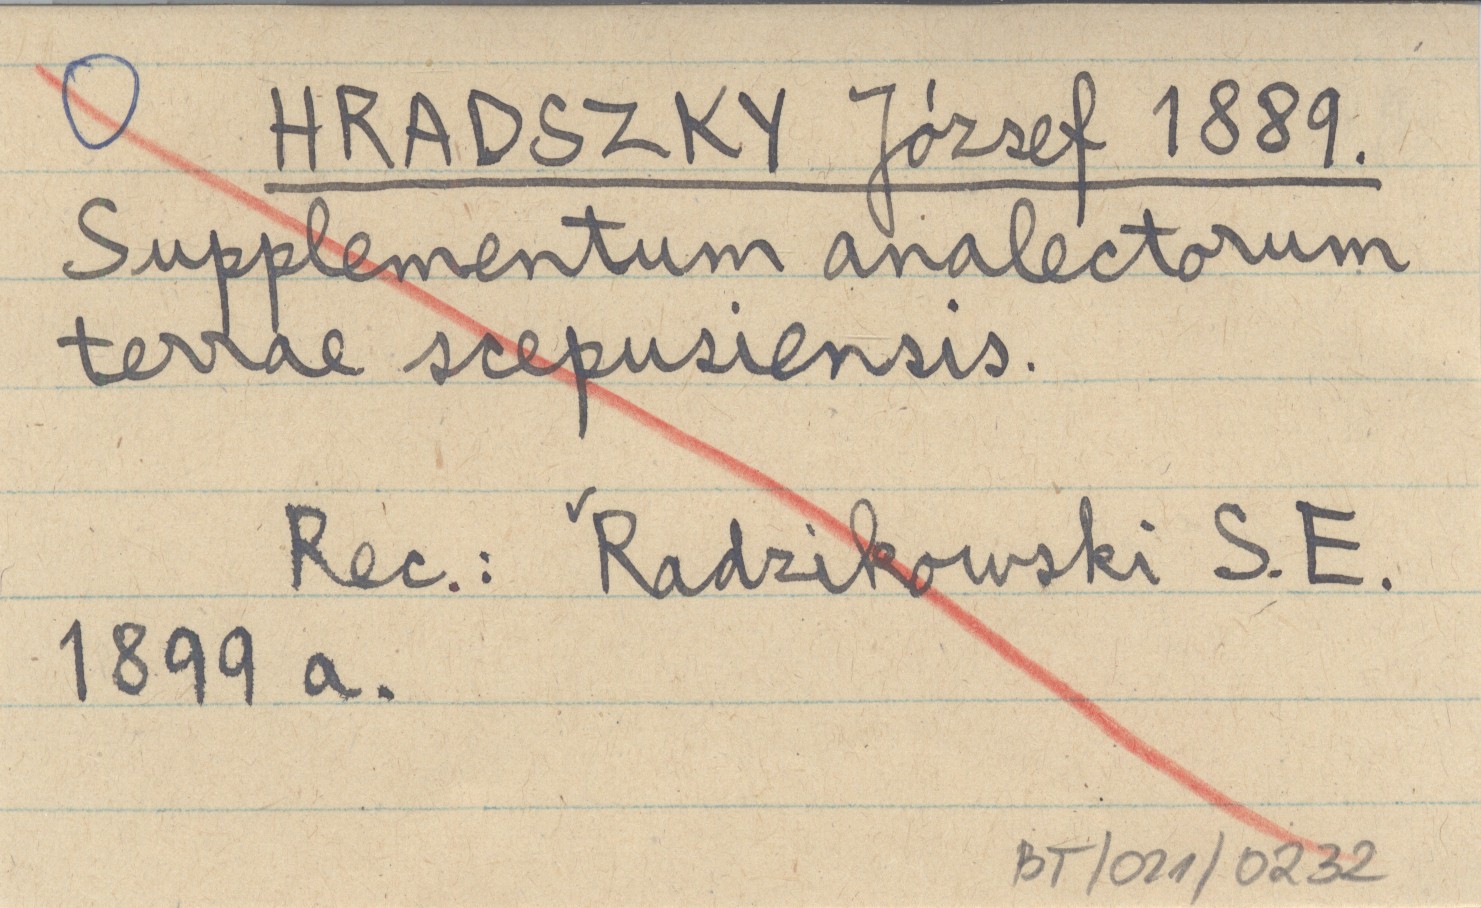 HRADSZKY József 1889.
Supplementum analectorum
terrae scepusiensis.
Rec.: ˇRadzikowski S.E.
1899 a.
BT/021/0232